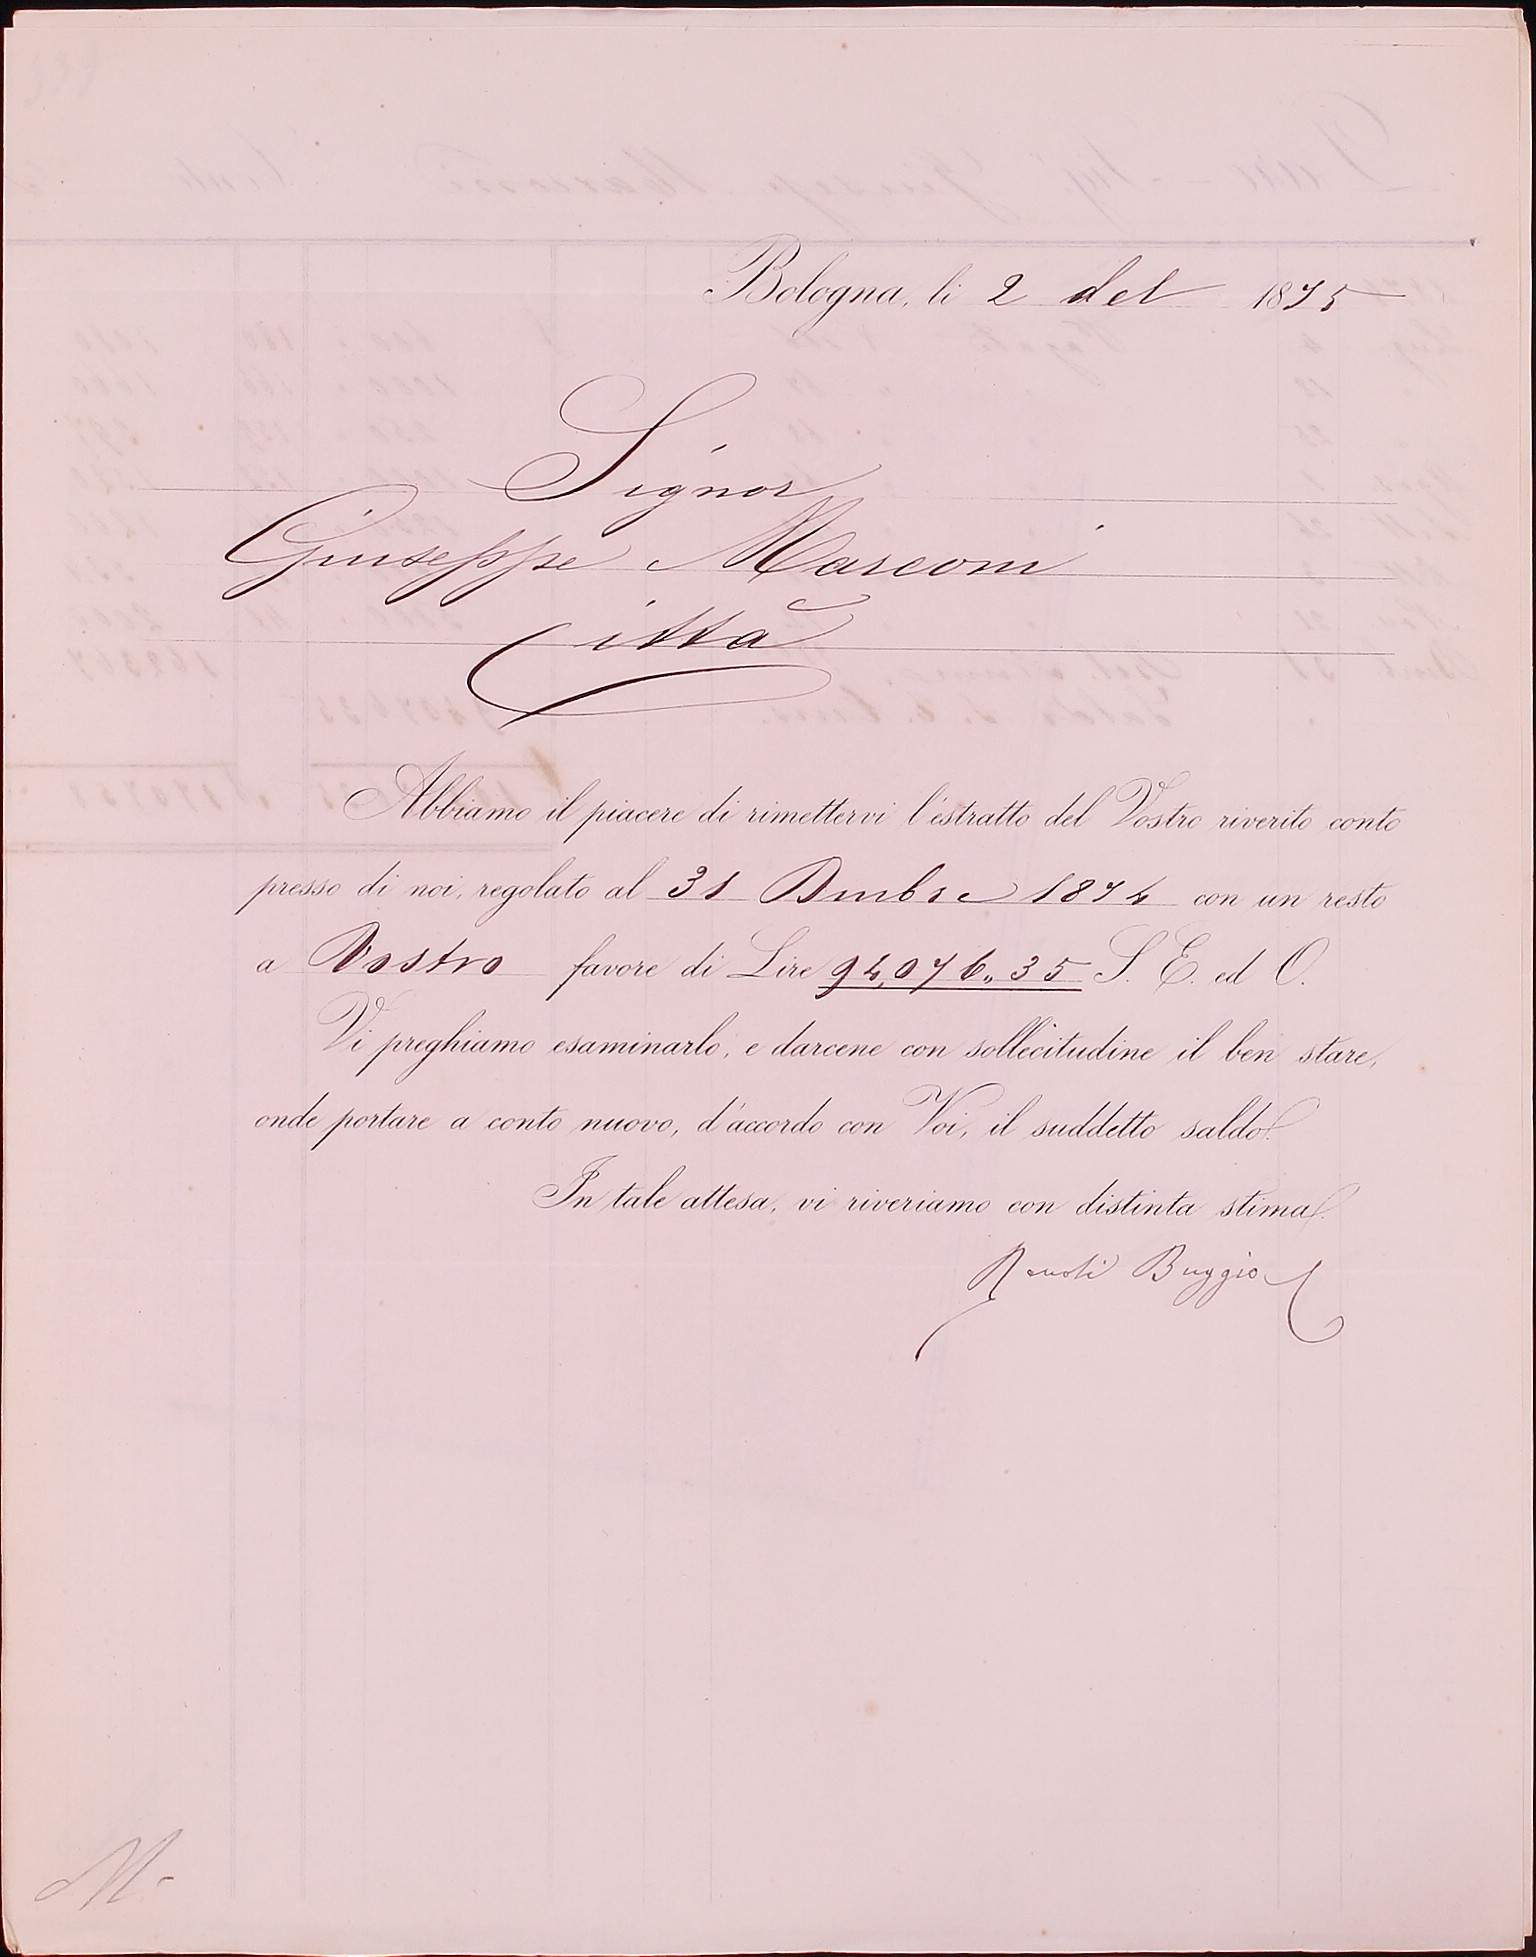 Bologna, li 2 del 1875
Signor
Giuseppe Marconi
Città
Abbiamo il piacere di rimettervi l'estratto del Vostro riverito conto
presso di noi, regolato al 31 Dmbre 1874 con un resto
a Vostro favore di Lire 94,076,,35 S. E. ed O.
Vi preghiamo esaminarlo, e darcene con sollecitudine il ben stare,
onde portare a conto nuovo, d'accordo con Voi, il suddetto saldo.
In tale attesa, vi riveriamo con distinta stima.
Renoli Buggio
M-